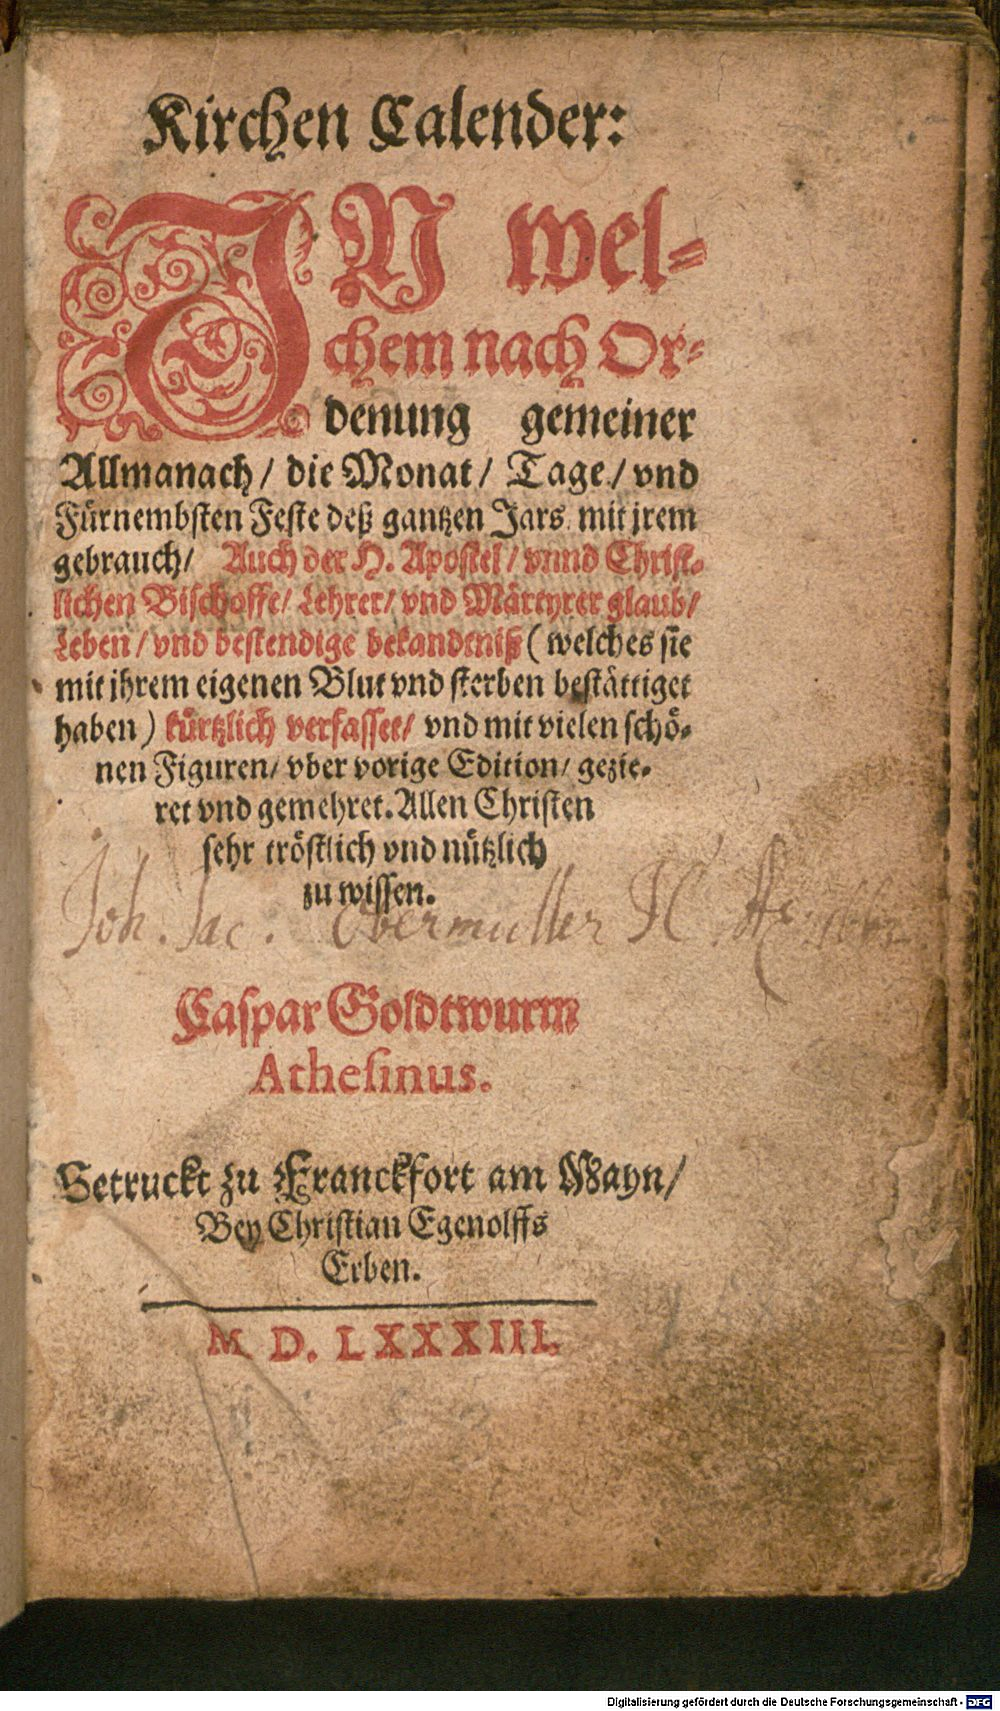 Kirchen Calender:
IN wel-
chem nach Or-
denung gemeiner
Allmanach / die Monat / Tage / vnd
Fürnembsten Feste deß gantzen Jars mit jrem
gebrauch / Auch der H. Apostel / vnnd Christ-
lichen Bischoffe / Lehrer / vnd Märtyrer glaub /
Leben / vnd bestendige bekandtniß ( welches sie
mit ihrem eigenen Blut vnd sterben bestättiget
haben ) kürtzlich verfasset / vnd mit vielen schö-
nen Figuren / vber vorige Edition / gezie-
ret vnd gemehret. Allen Christen
sehr tröstlich vnd nützlich
zu wissen.
Joh. Jac. Obermuller
Caspar Goldtwurm
Athesinus.
Getruckt zu Franckfort am Mayn /
Bey Christian Egenolffs
Erben.
M D. LXXXIII.
Digitalisierung gefördert durch die Deutsche Forschungsgemeinschaft - DFG